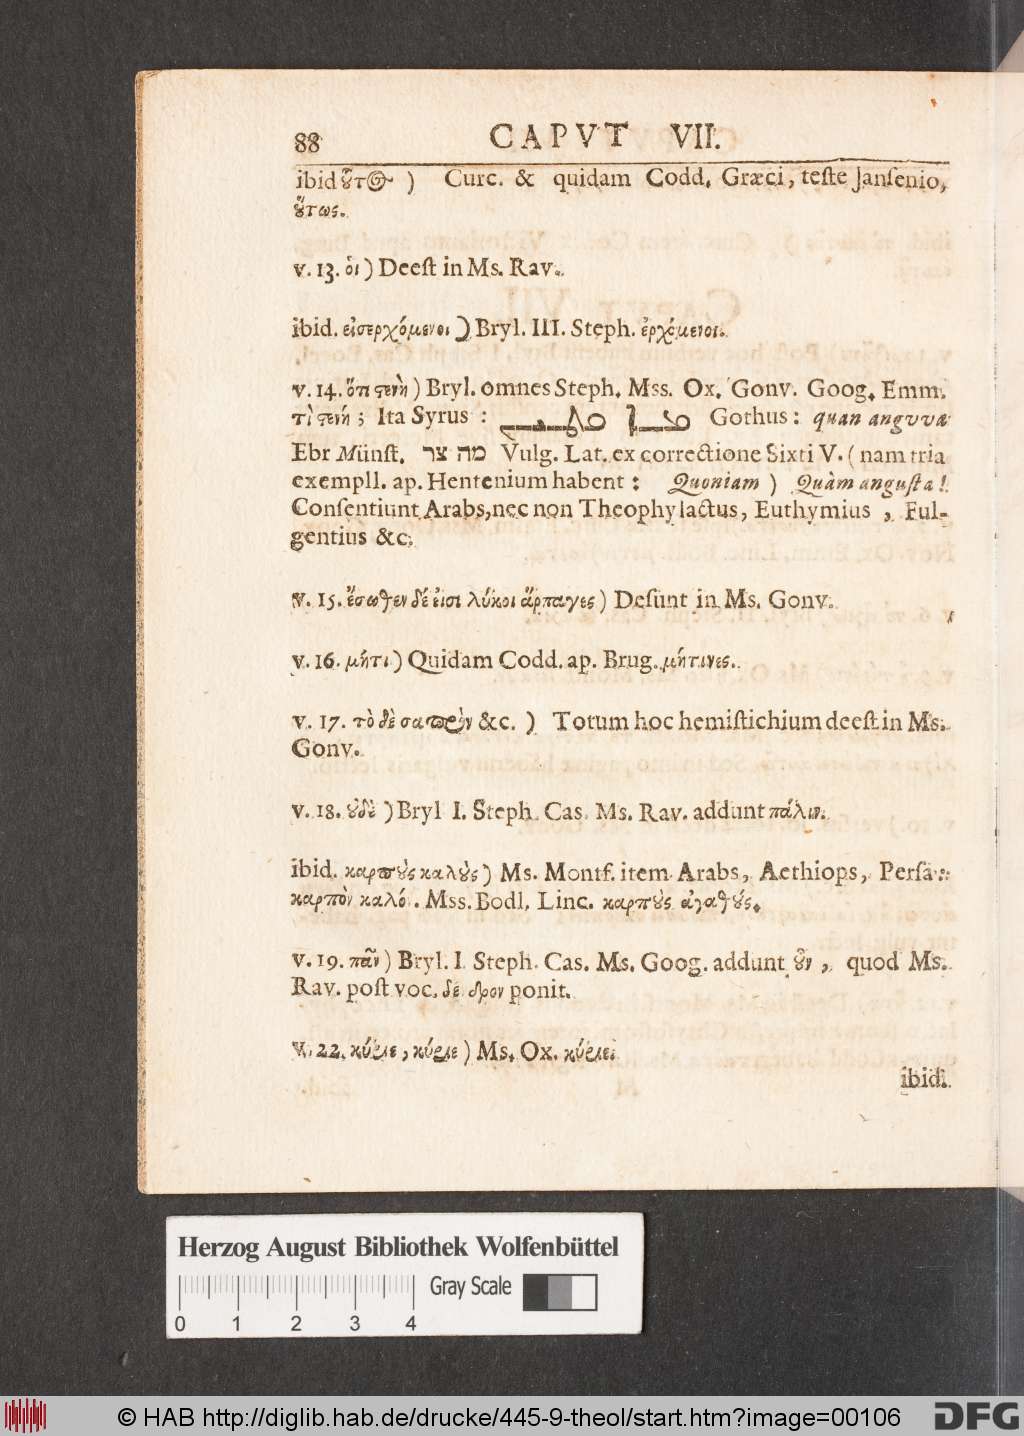 88 CAPVT VII.
ibid ȣ̃τος ) Curc. & quidam Codd. Græci, teſte Janſenio,
ȣ̔́τως.
v. 13. ὁι ) Deeſt in Ms. Rav.
ibid. εἰσερχόμενοι ) Bryl. III. Steph. ἐρχόμενοι.
v. 14. ὅτι ϛενὴ ) Bryl. omnes Steph. Mss. Ox. Gonv. Goog. Emm.
τὶ ϛενή ; Ita Syrus : Gothus : quan angvvæ
Ebr Münſt. מה צר Vulg. Lat. ex correctione Sixti V. ( nam tria
exempll. ap. Hentenium habent : Quoniam ) Quàm anguſta !
Conſentiunt Arabs, nec non Theophylactus, Euthymius , Ful-
gentius &c.
v. 15. ἔσωθεν δέ εἰσι λύκοι ἅρπαγες ) Deſunt in Ms. Gonv.
v. 16. μήτι ) Quidam Codd. ap. Brug. μήτινες.
v. 17. τὸ δὲ σαπρὸν &c. ) Totum hoc hemiſtichium deeſt in Ms.
Gonv.
v. 18. ȣ̓δὲ ) Bryl I. Steph. Cas. Ms. Rav. addunt πάλιν.
ibid. καρπȣ̀ς καλȣ̀ς ) Ms. Montf. item Arabs, Aethiops, Perſa :
καρπὸν καλό. . Mss. Bodl, Linc. καρπȣ̀ς ἀγαθȣ́ς.
v. 19. πᾶν ) Bryl. I. Steph. Cas. Ms. Goog. addunt ȣ̓͂ν , quod Ms.
Rav. poſt voc. δένδρον ponit.
v. 22. κύριε , κύριε ) Ms. Ox. κύριε.
ibid.
Herzog August Bibliothek Wolfenbüttel
Gray Scale
0 1 2 3 4
© HAB http://diglib.hab.de/drucke/445-9-theol/start.htm?image=00106
DFG